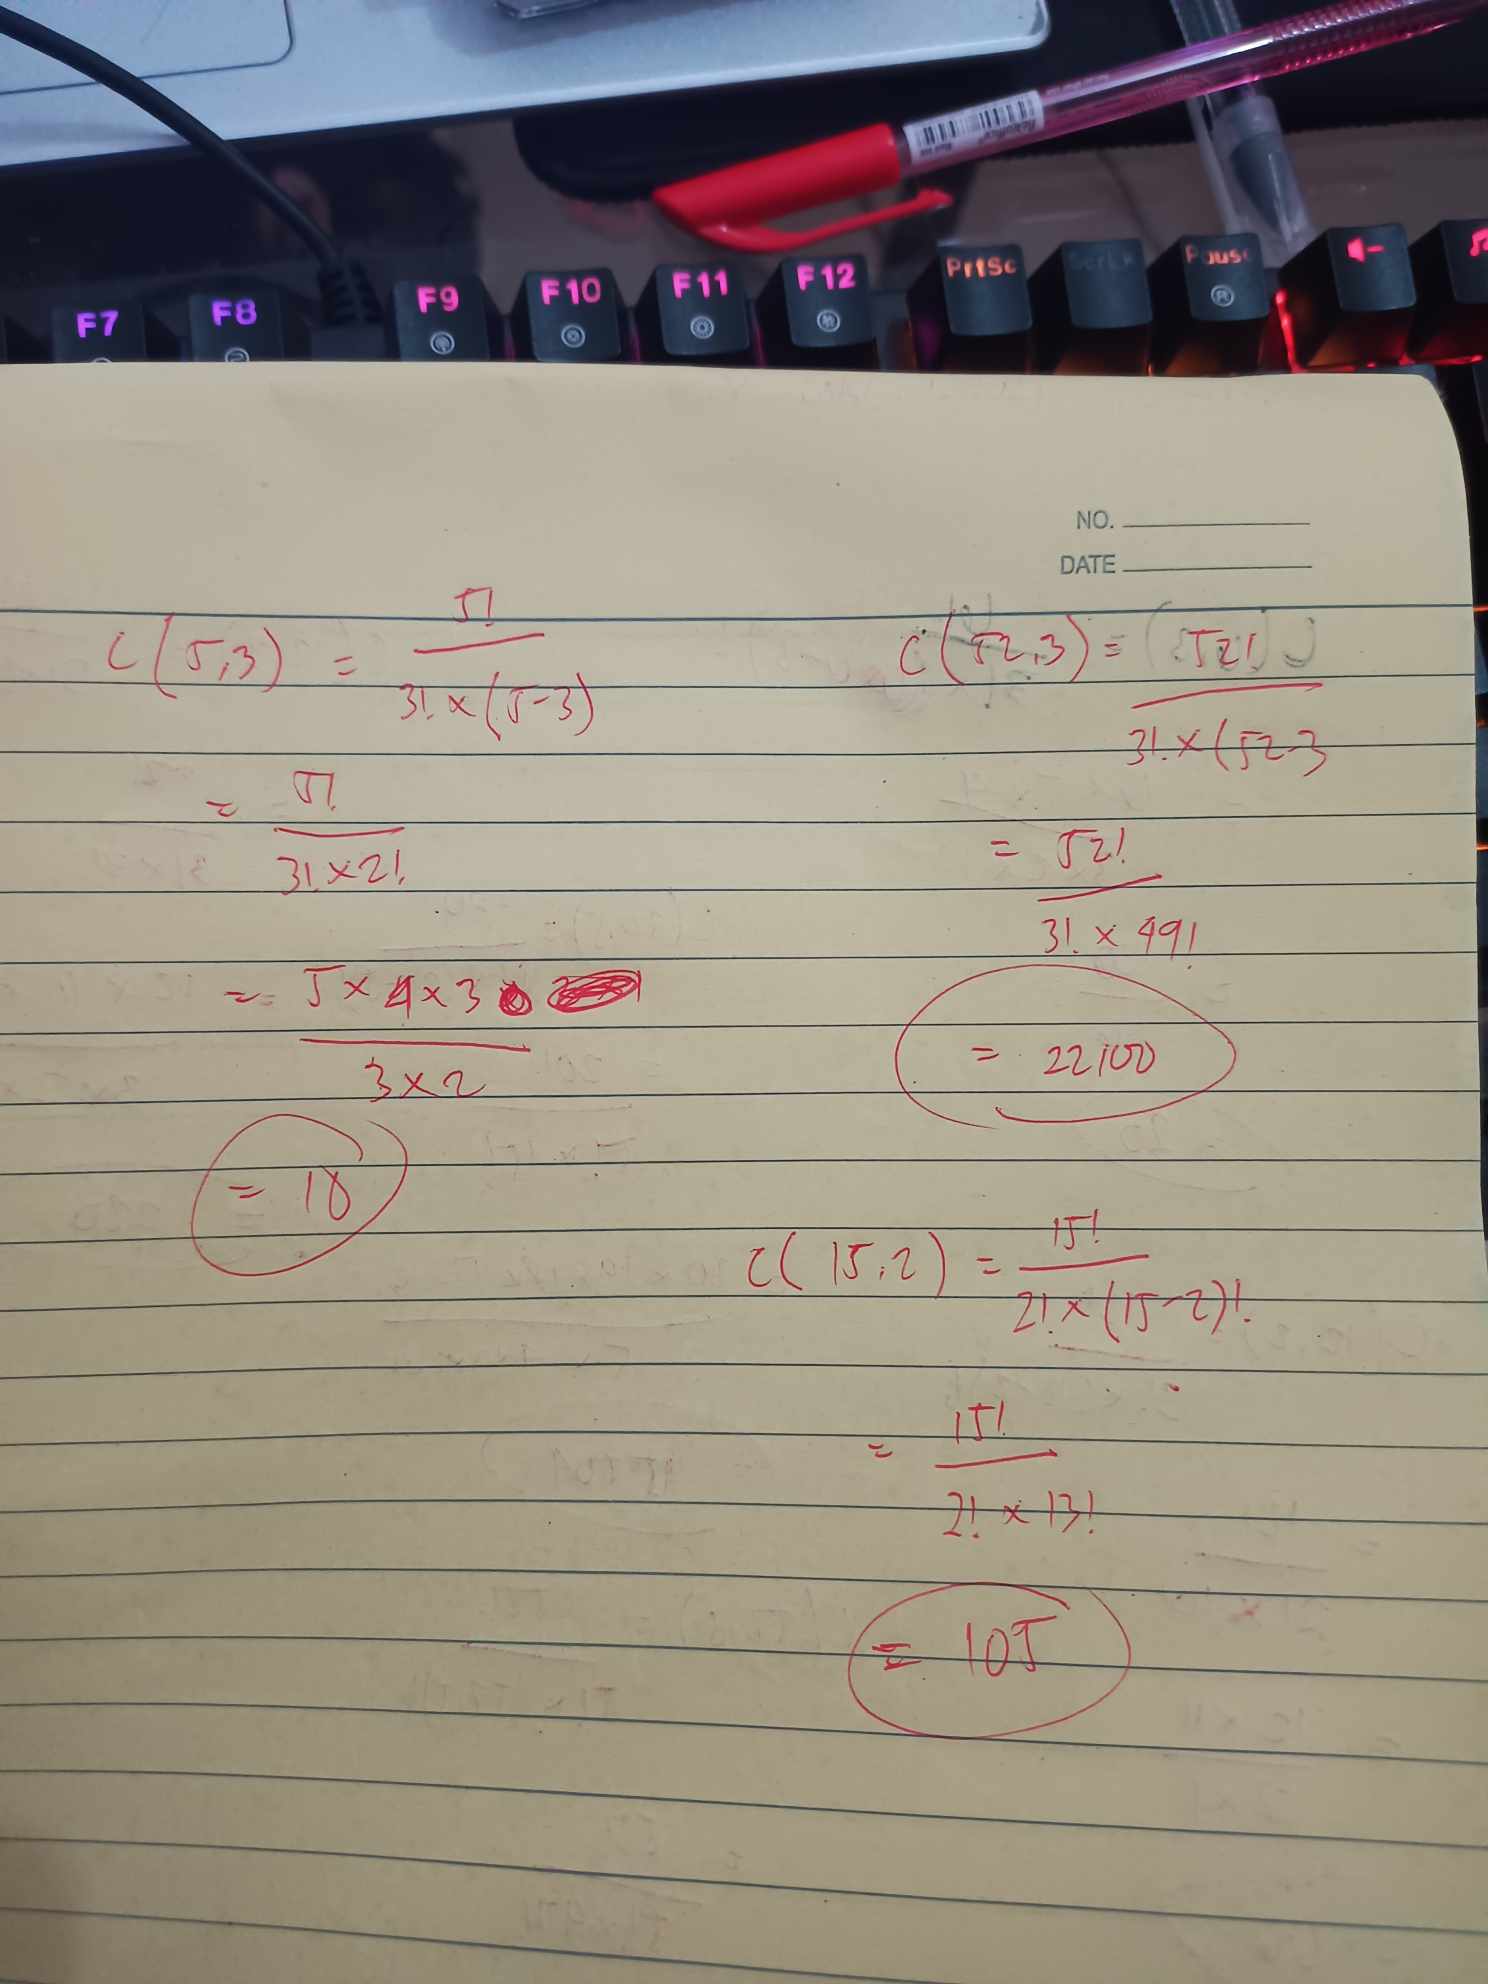 F7 F8 F9 F10 F11 F12 PrtSc ScrLk Pause
NO.
DATE
C(5,3) = 5!
3! × (5-3)
= 5!
3! × 2!
= 5 × 4 × 3
3 × 2
= 10
C(52,3) = 52!
3! × (52-3
= 52!
3! × 49!
= 22100
C(15,2) = 15!
2! × (15-2)!
= 15!
2! × 13!
= 105